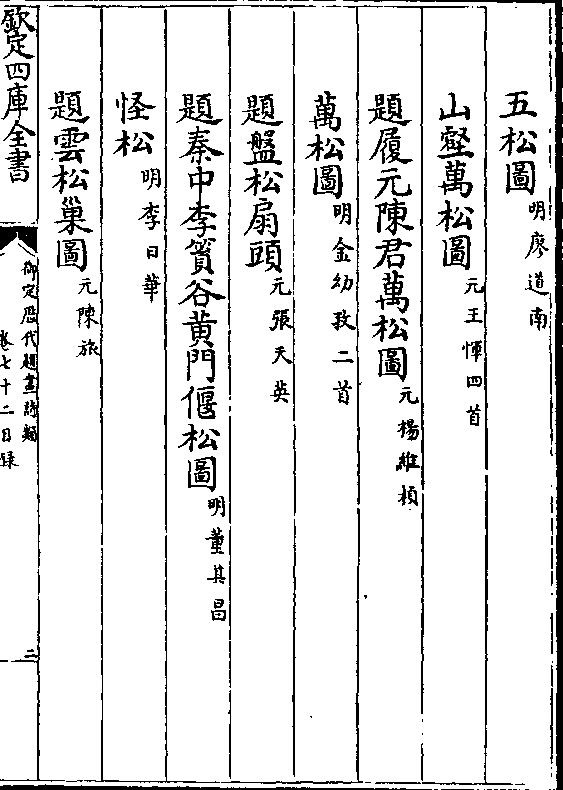 五松圖 明廖道南
山壑萬松圖 元王惲四首
題履元陳君萬松圖 元楊維楨
萬松圖 明金幼孜二首
題盤松扇頭 元張天英
題秦中李質谷黄門偃松圖 明董其昌
怪松 明李日華
題雲松巢圖 元陳旅
欽定四庫全書
御定歴代題畫詩類
卷七十二目録
二